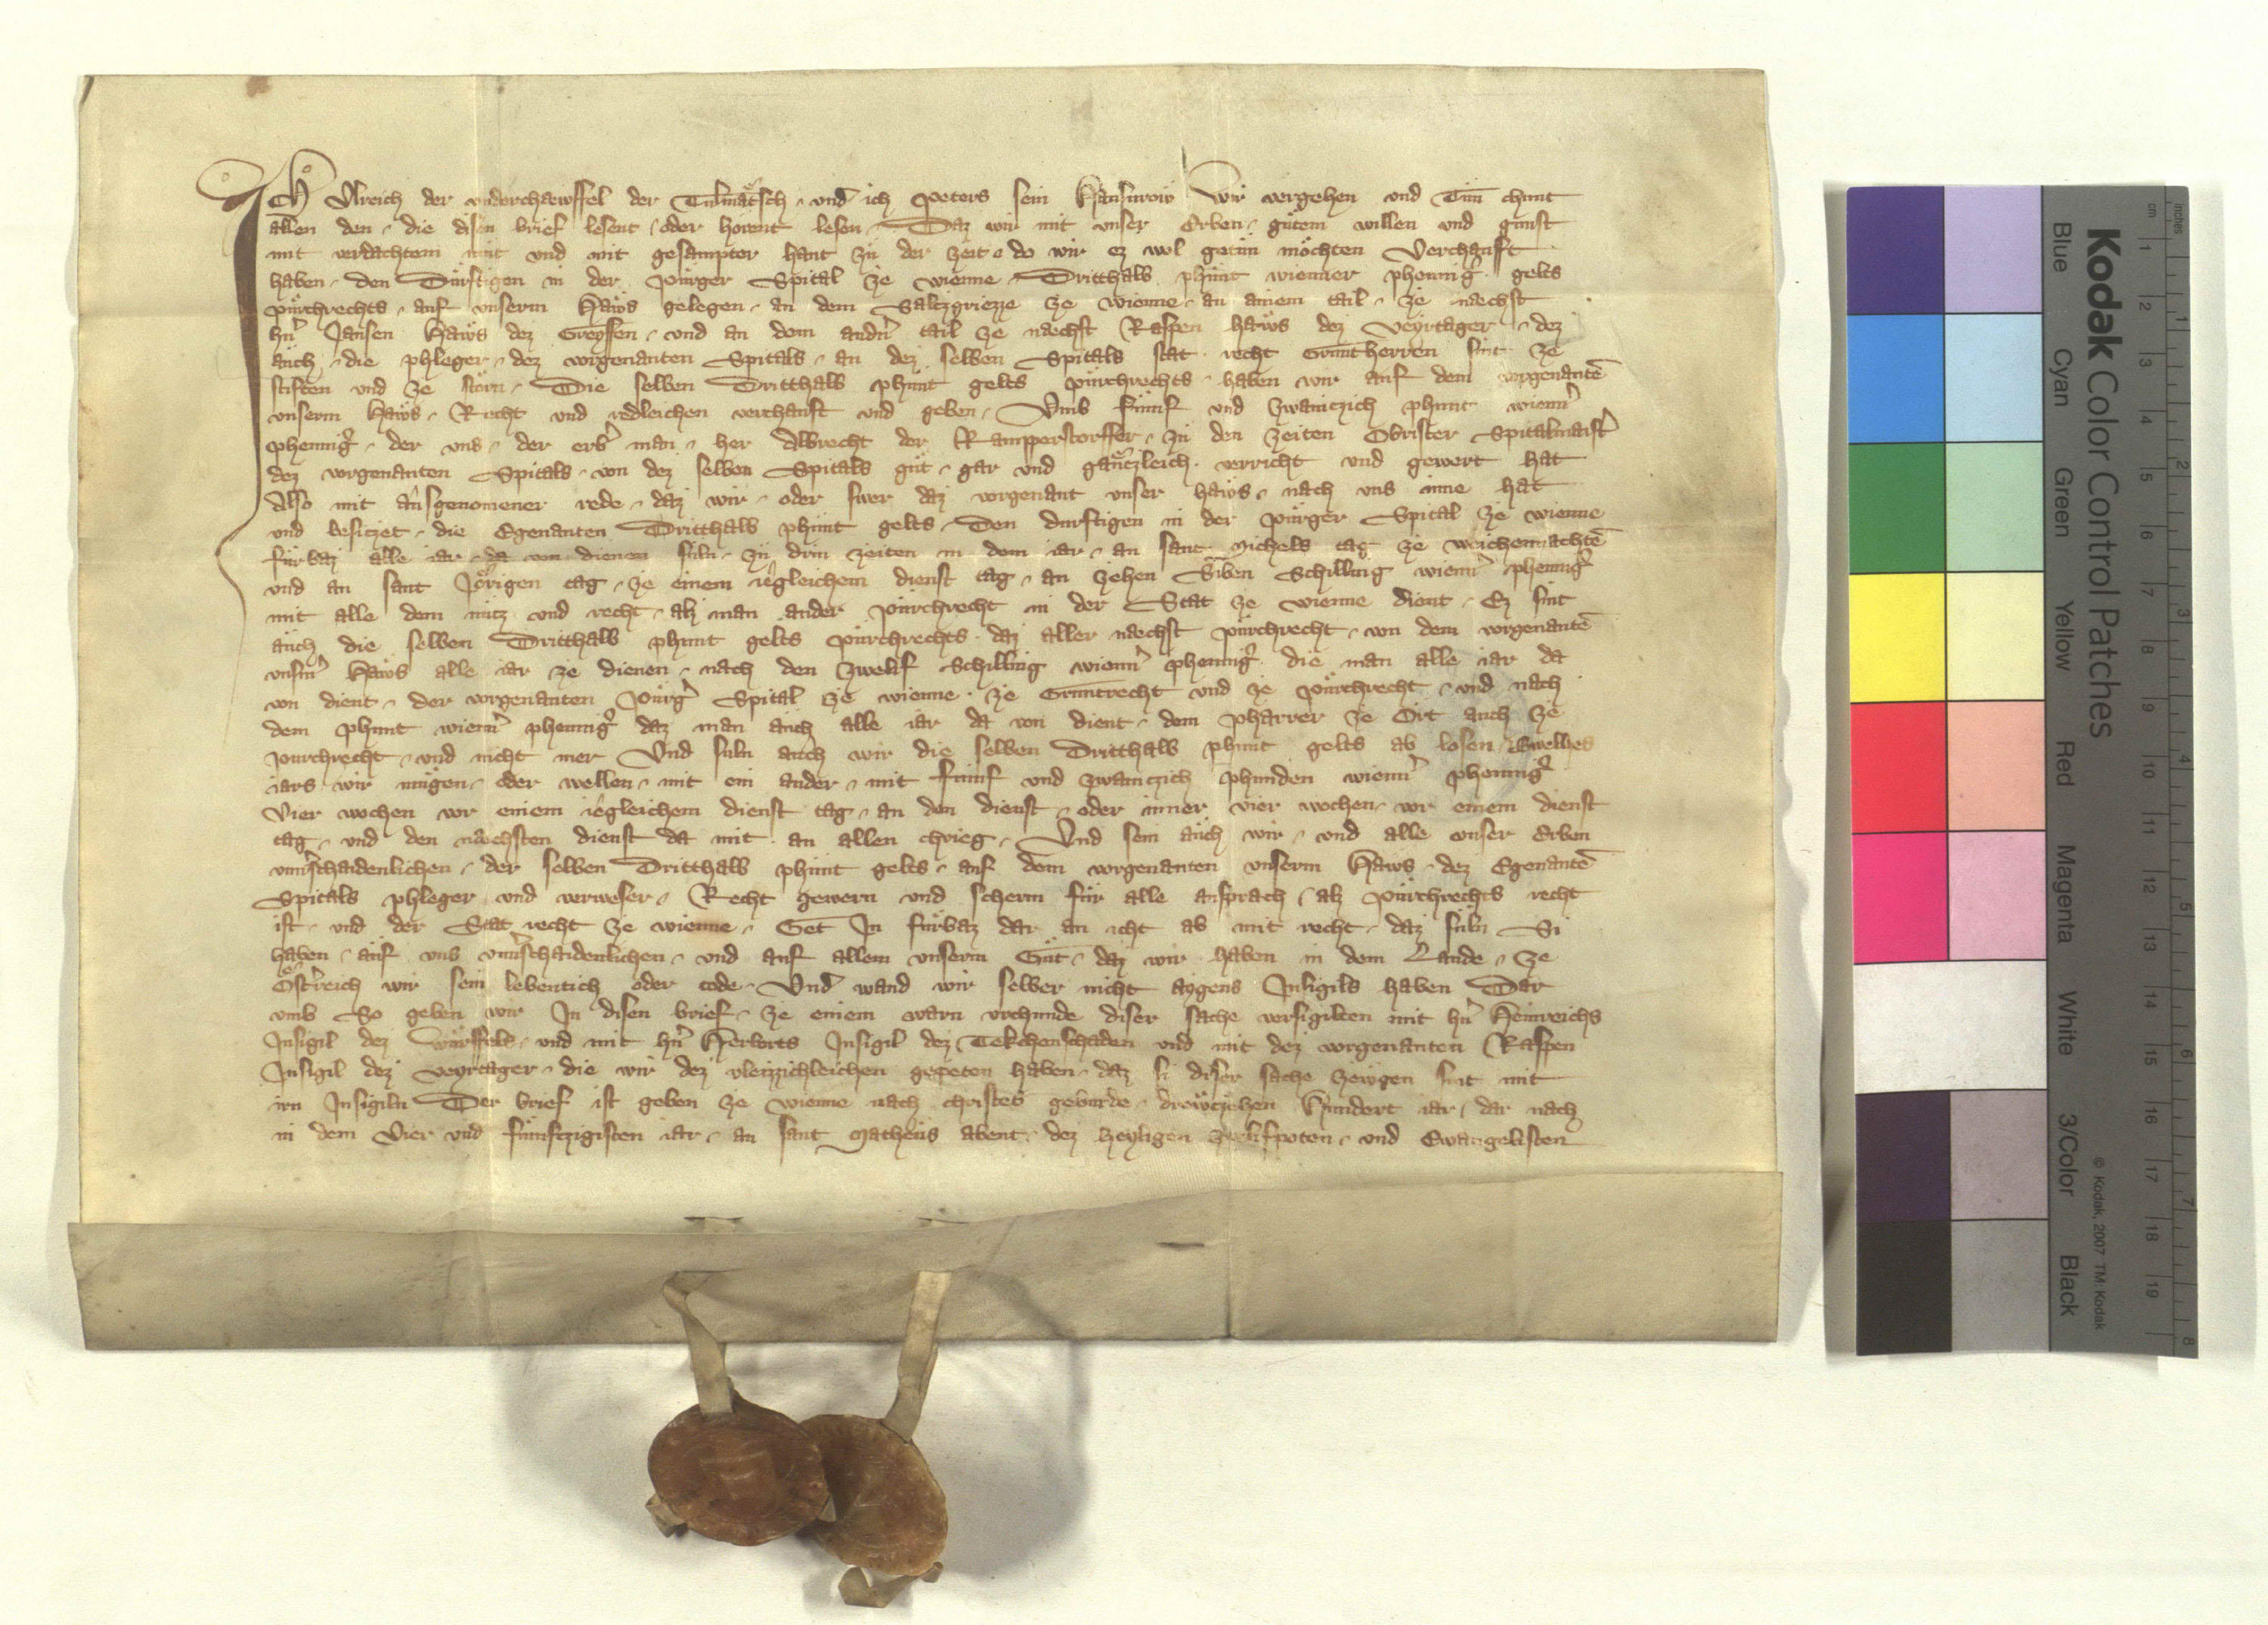 Ich Ulreich der underchaewffel der Tulmaͤtsch und ich Peters sein Hausvrow Wir vergehen und Tun chunt
allen den die disen brief lesent oder horent lesen Daz wir mit unser Erben guͤtem willen und gunst
mit verdachtem muͤt und mit gesampter hant zuͤ der zeit do wir ez wol getuͤn mochten Verchauft
haben den Duͤrftigen in der Puͤrger Spital ze wienne Dritthalb phunt wienner phenniḡ gelts
purchrechts auf unserm Haws gelegen an dem Saltzgriezze ze wienne an ainem tail ze naechst
hn̄ Jansen Haws dez Greyffen und an dem andn̄ tail ze naechst Raspen haws dez Veyrtager dez
auch die phleger dez vorgenanten Spitals an dez selben Spitals stat recht Gruntherren sint ze
stiften und ze storn Die selben Dritthalb phunt gelts purchrechts haben wir auf dem vorgenantē
unserm Haws Recht und redleichen verchauft und geben Umb fumf und zwaintzich phunt wienn̄
phenniḡ der uns der erb̄ man her Albrecht der Ramperstorffer zuͤ den zeiten Obrister Spitalmaist̄
dez vorgenanten Spitals von dez selben Spitals guͤt gar und gantzleich verricht und gewert hat
Also mit ausgenomener rede daz wir oder swer daz vorgenant unser haws nach uns inne hat
und besitzet die Egenanten Dritthalb phunt gelts Den durftigen in der Purger Spital ze wienne
furbaz alle iar da von dienen suln zuͤ drin zeiten in dem iar an sant Michels tag ze weichennachtē
und an sant Jorigen tag ze einem iegleichem dienst tag an zehen Siben Schilling wienn̄ phenniḡ
mit alle dem nutz und recht alz man ander purchrecht in der Stat ze wienne dient Ez sint
auch die selben Dritthalb phunt gelts purchrechts daz aller naechst purchrecht von dem vorgenantē
unsm̄ Haws alle iar ze dienen nach den zwelif Schilling wienn̄ phenniḡ die man alle iar da
von dient der vorgenanten Purḡ Spital ze wienne ze Gruntrecht und ze purchrecht und nach
dem phunt wienn̄ phenniḡ daz man auch alle iar da von dient dem pharrer ze Ort auch ze
purchrecht und nicht mer Und suln auch wir die selben Dritthalb phunt gelts ab losen Swelhes
iars wir mugen oder wellen mit ein ander mit fumf und zwaintzich phunden wienn̄ phenniḡ
Vier wochen vor einem iegleichem dienst tag an den dienst oder inner vier wochen vor einem dienst
tag und den naechsten dienst da mit an allen chrieg Und sein auch wir und alle unser Erben
unu̅schaidenlichen der selben Dritthalb phunt gelts auf dem vorgenanten unserm Haws dez Egenantē
Spitals phleger und verweser Recht gewern und scherm fur alle ansprach alz purchrechts recht
ist und der Stat recht ze wienne Get In furbaz dar an icht ab mit recht daz suln Si
haben auf uns unu̅schaidenlichen und auf allem unserm Guͤt daz wir haben in dem Lande ze
Osterreich wir sein lebentich oder tode Und wand wir selber nicht aygens Insigils haben Dar
umb So geben wir In disen brief ze einem warn urchunde diser sache versigilten mit hn̄ Heinreichs
Insigil dez Wurffels und mit hn̄ Herborts Insigil dez Tekchenschaden und mit dez vorgenanten Raspen
Insigil dez Veyrtager die wir dez vleizzichleichen gepeten haben daz si diser sache zewgen sint mit
irn Insigiln Der brief ist geben ze wienne nach christes geburde drewtzehen Hundert iar dar nach
in dem Vier und fumftzigisten iar an sant Matheus abent dez heyligen zwelifpoten und Ewangelisten
Kodak Color Control Patches
Blue Cyan Green Yellow Red Magenta White 3/Color Black
© Kodak, 2007 TM: Kodak
cm 1 2 3 4 5 6 7 8 9 10 11 12 13 14 15 16 17 18 19
inches 1 2 3 4 5 6 7 8